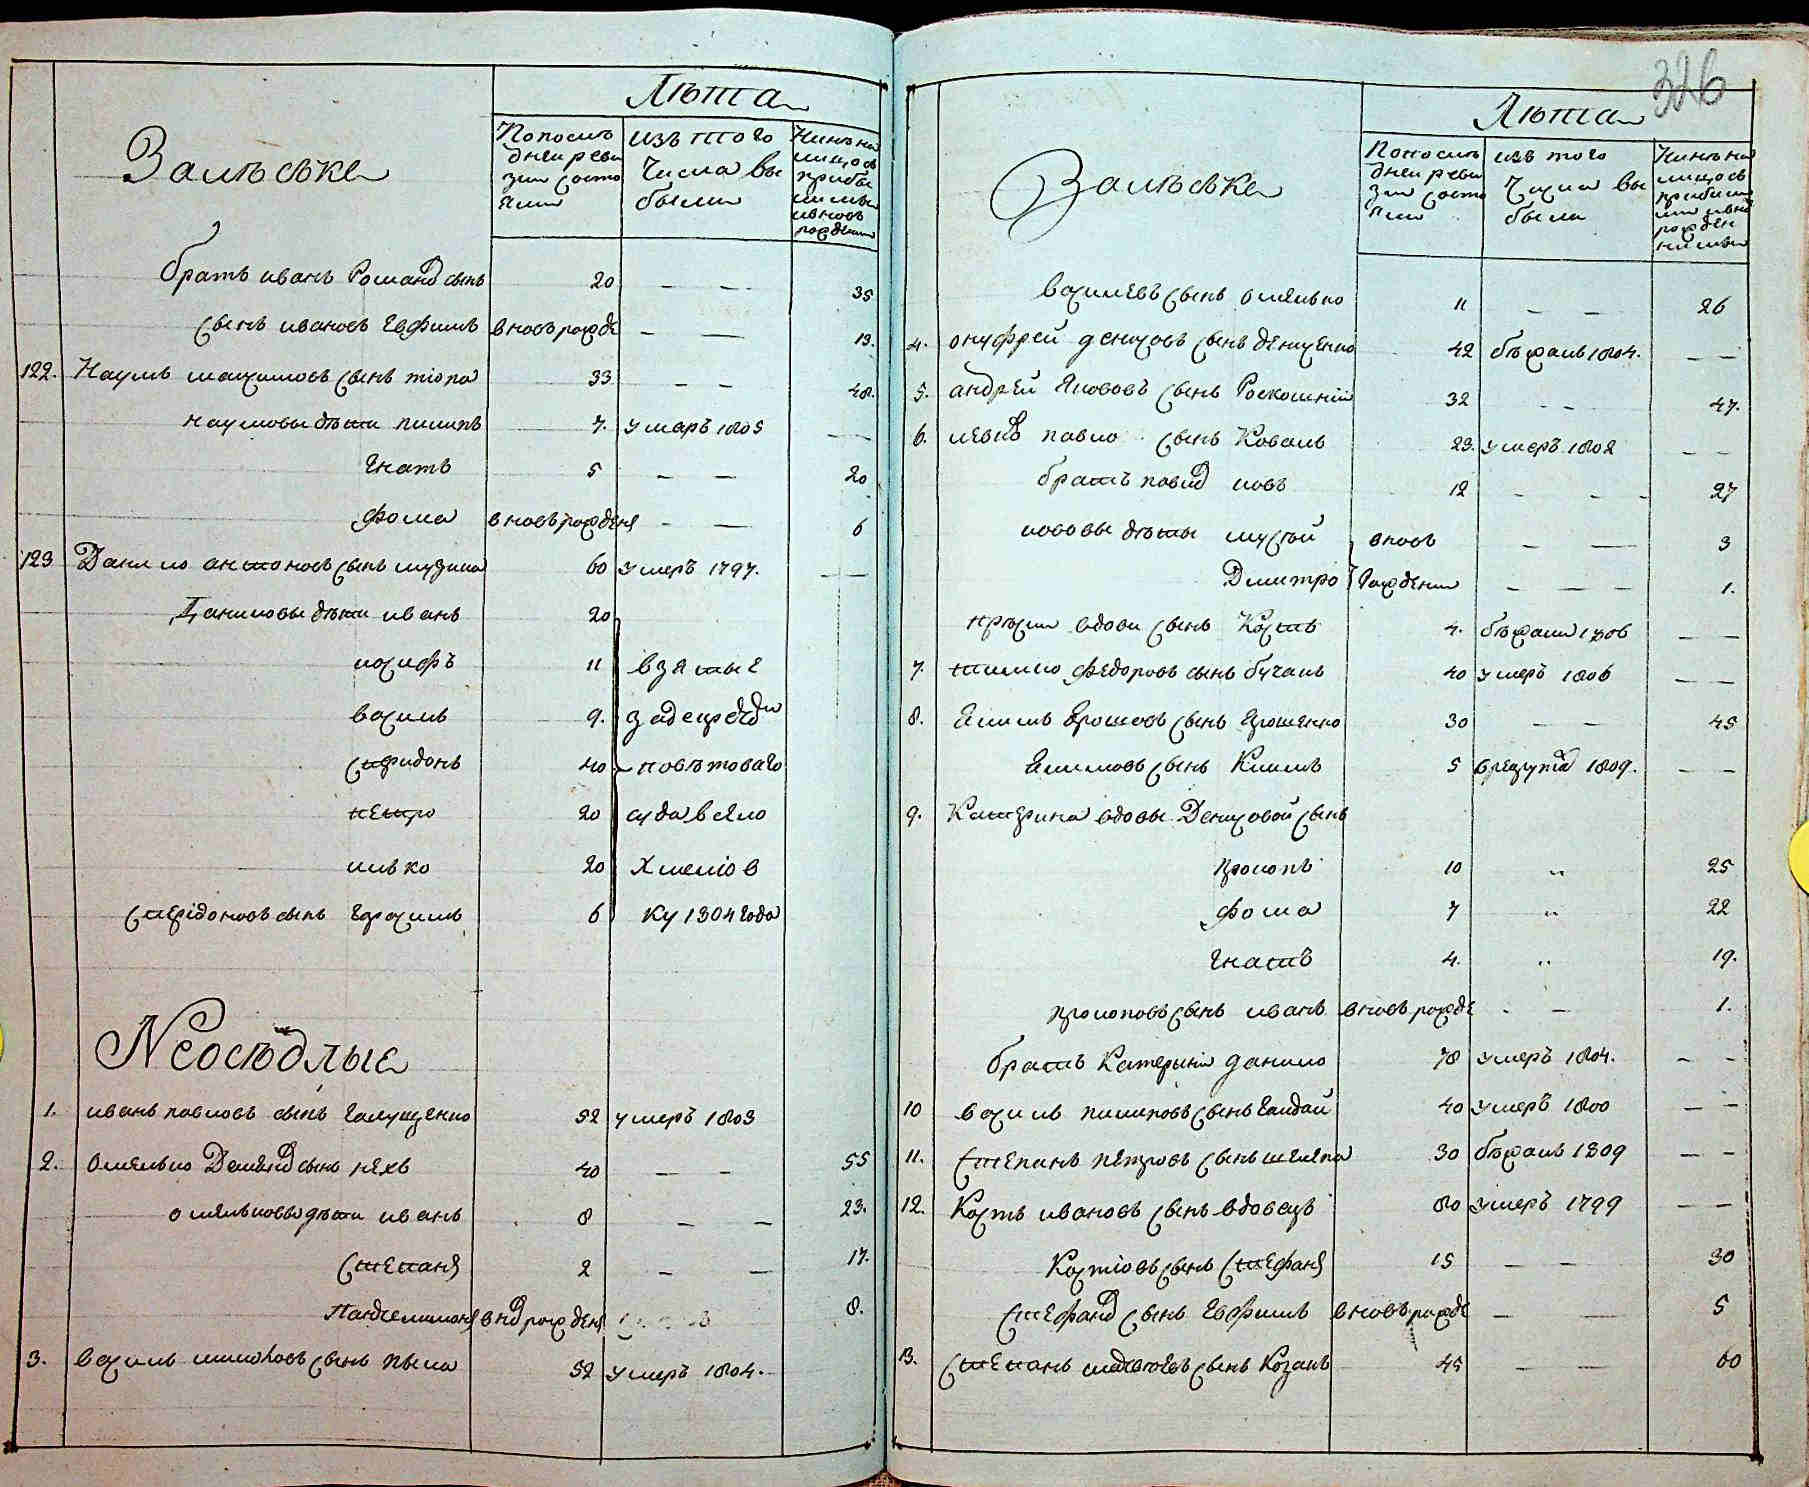 Лѣта
Залѣсѣке
По послѣ
дней реви
зіи состо
яли
изъ того
числа вы
были
Нинѣ на
лицо съ
прибы
лыми
и вновь
рожден
братъ иванъ Романов сынъ 20 — — 35
сынъ ивановъ Евфимъ вновь рожде — — 13.
122. Наумъ максимовъ сынъ тіопа 33 — — 48.
наумовы дѣти пилипъ 7. умеръ 1805 —
гнатъ 5 — — 20
фома вновь рожденя — — 6
123 Данило антоновъ сынъ музика 60 умеръ 1797. —
Даниловы дѣти иванъ 20
иосифъ 11 взятые
василь 9.
спридонъ 40 повѣтоваго
петро 20 суда в село
илько 20 Хмеліов
сперідоновъ сынъ Герасимъ 6 ку 1804 года
Неосѣдлые
1. иванъ павловъ сынъ галущенко 52 умеръ 1803
2. омелько Деменов сынъ пехъ 40 — — 55
омельковы дѣти иванъ 8 — — 23.
Степанъ 2 — — 17.
Пантелимонъ внов рожденя 8.
3. василь сынъ пыпа 52 умеръ 1804. —
326
Лѣта
Залѣсѣке
По послѣ
дней реви
зіи состо
яли
изъ того
числа вы
были
Нинѣ на
лицо съ
прибыли
ми и внов
рожден
ними
василевъ сынъ омелько 11 — — 26
4. онуфрей денисовъ сынъ денисенко 42 бѣжалъ 1804. — —
5. андрей Якововъ сынъ Роскошній 32 - - 47.
6. левко павло сынъ Коваль 23. умеръ 1802 — —
братъ павлов иовъ 12 - - - 27
иововы дѣти мусій вновь — — 3
Дмитро рождени — — — 1.
вдови сынъ Костъ 4. бѣжалъ 1806 — —
7. тимко федоровъ сынъ бучакъ 40 умеръ 1806 — —
8. Якимъ Ярошовъ сынъ Ярошенко 30 — — 45
Якимовъ сынъ Климъ 5 в рекрута 1809. — —
9. Катерина вдовы Денисовой сынъ
прокопъ 10 „ 25
фома 7 „ 22
гнатъ 4. „ 19.
прокоповъ сынъ иванъ вновь рожде - — 1.
братъ Катерыни данило 78 умеръ 1804. - —
10 василь пилиповъ сынъ гайдай 40 умеръ 1800 — —
11. Степанъ петровъ сынъ шелепа 30 бѣжалъ 1809 — —
12. Костъ ивановъ сынъ вдовецъ 80 умеръ 1799 — —
Костіовъ сынъ Стефанъ 15 — — 30
Стефанов сынъ Евфимъ вновь рожде — — 5
13. Степанъ сынъ Козакъ 45 — — 60